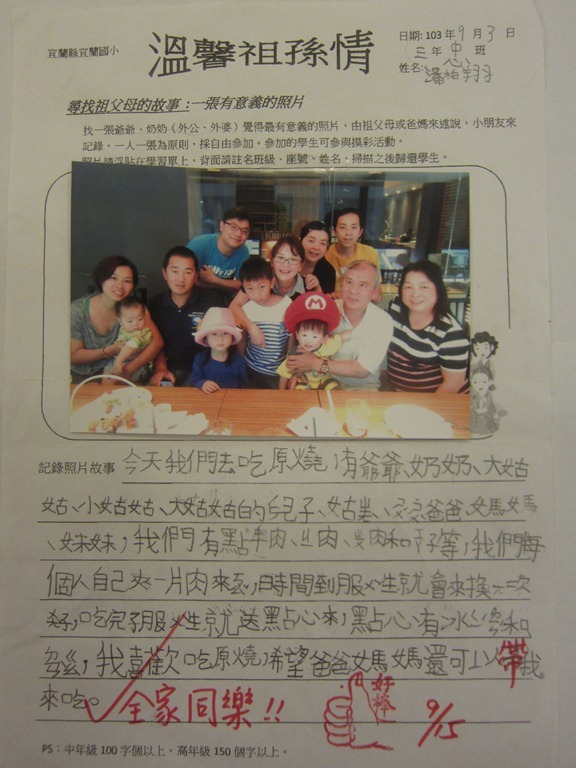 宜蘭縣宜蘭國小
溫馨祖孫情
日期: 103 年 9 月 3 日
三 年 忠 班
姓名: 潘柏
尋找祖父母的故事：一張有意義的照片
找一張爺爺、奶奶（外公、外婆）覺得最有意義的照片，由祖父母或爸媽來述說，小朋友來
記錄，一人一張為原則，採自由參加。參加的學生可參與摸彩活動。
照片請浮貼在學習單上，背面請註名班級、座號、姓名，掃描之後歸還學生。
M
記錄照片故事 今天我們去吃原燒，有爺爺、奶奶、大姑
姑、小姑姑、大姑姑的兒子、姑丈、爸爸、媽媽
、妹妹，我們有點牛肉、肉、肉和等，我們每
個人自己夾一片肉來，時間到服生就會來換一次
，吃完了服生就送點心來，點心有冰和
，我喜歡吃原燒，希望爸爸媽媽還可以帶我
來吃。
全家同樂!!
好棒
9/15
PS：中年級 100 字個以上。高年級 150 個字以上。